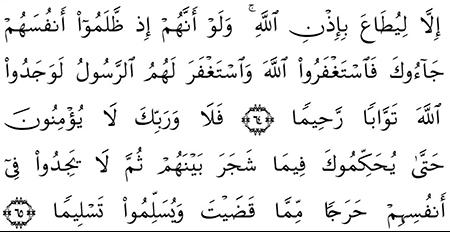 إِلَّا لِيُطَاعَ بِإِذْنِ ٱللَّهِ ۚ وَلَوْ أَنَّهُمْ إِذ ظَّلَمُوٓا۟ أَنفُسَهُمْ
جَآءُوكَ فَٱسْتَغْفَرُوا۟ ٱللَّهَ وَٱسْتَغْفَرَ لَهُمُ ٱلرَّسُولُ لَوَجَدُوا۟
ٱللَّهَ تَوَّابًا رَّحِيمًا ﴿٦٤﴾ فَلَا وَرَبِّكَ لَا يُؤْمِنُونَ
حَتَّىٰ يُحَكِّمُوكَ فِيمَا شَجَرَ بَيْنَهُمْ ثُمَّ لَا يَجِدُوا۟ فِىٓ
أَنفُسِهِمْ حَرَجًا مِّمَّا قَضَيْتَ وَيُسَلِّمُوا۟ تَسْلِيمًا ﴿٦٥﴾